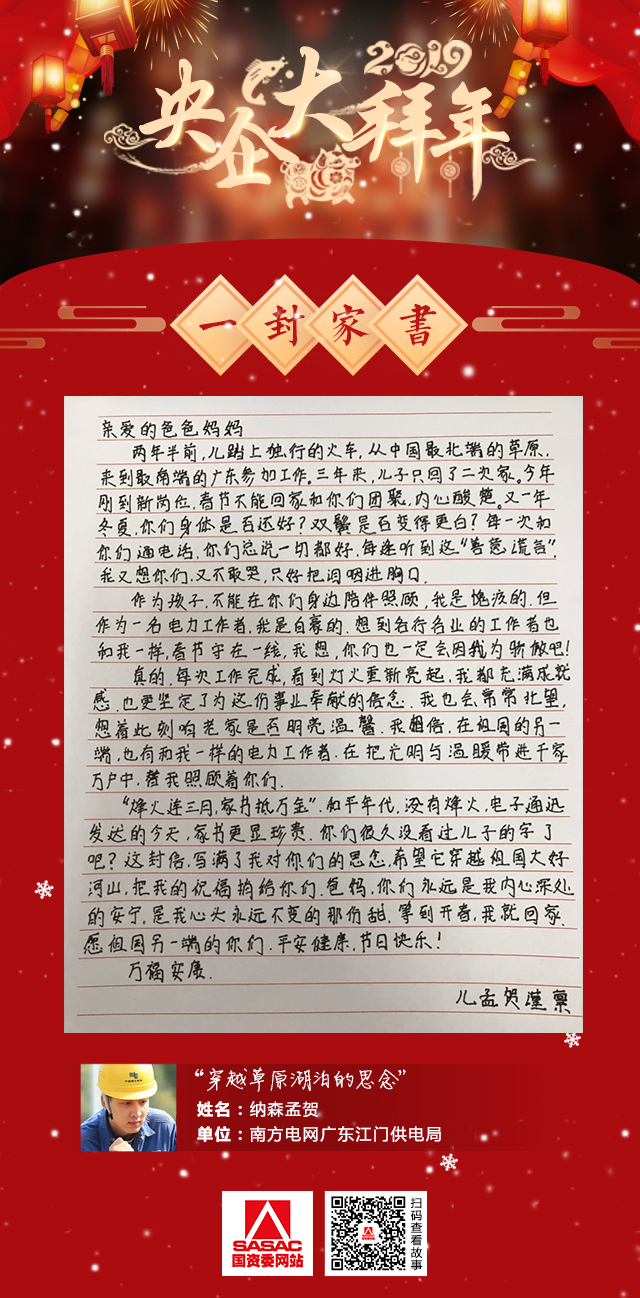 2019
央企大拜年
一封家書
亲爱的爸爸妈妈
两年半前,儿踏上独行的火车,从中国最北端的草原,
来到最南端的广东参加工作。三年来,儿子只回了二次家。今年
刚到新岗位,春节不能回家和你们团聚,内心酸楚。又一年
冬夏,你们身体是否还好?双鬓是否变得更白?每一次和
你们通电话,你们总说一切都好,每逢听到这“善意谎言”,
我又想你们,又不敢哭,只好把泪咽进胸口.
作为孩子,不能在你们身边陪伴照顾,我是愧疚的.但
作为一名电力工作者,我是自豪的.想到各行各业的工作者也
和我一样,春节守在一线,我想,你们也一定会因我为骄傲吧!
真的,每次工作完成,看到灯火重新亮起,我都充满成就
感,也更坚定了为这份事业奉献的信念.我也会常常北望,
想着此刻咱老家是否明亮温馨.我相信,在祖国的另一
端,也有和我一样的电力工作者,在把光明与温暖带进千家
万户中,替我照顾着你们.
“烽火连三月,家书抵万金”.和平年代,没有烽火,电子通迅
发达的今天,家书更显珍贵.你们很久没看过儿子的字了
吧?这封信,写满了我对你们的思念,希望它穿越祖国大好
河山,把我的祝福捎给你们.爸妈,你们永远是我内心深处
的安宁,是我心头永远不变的那份甜.等到开春,我就回家.
愿祖国另一端的你们,平安健康,节日快乐!
万福安康.
儿孟贺谨禀
“穿越草原湖泊的思念”
姓名:纳森孟贺
单位:南方电网广东江门供电局
SASAC
国资委网站
扫码查看故事